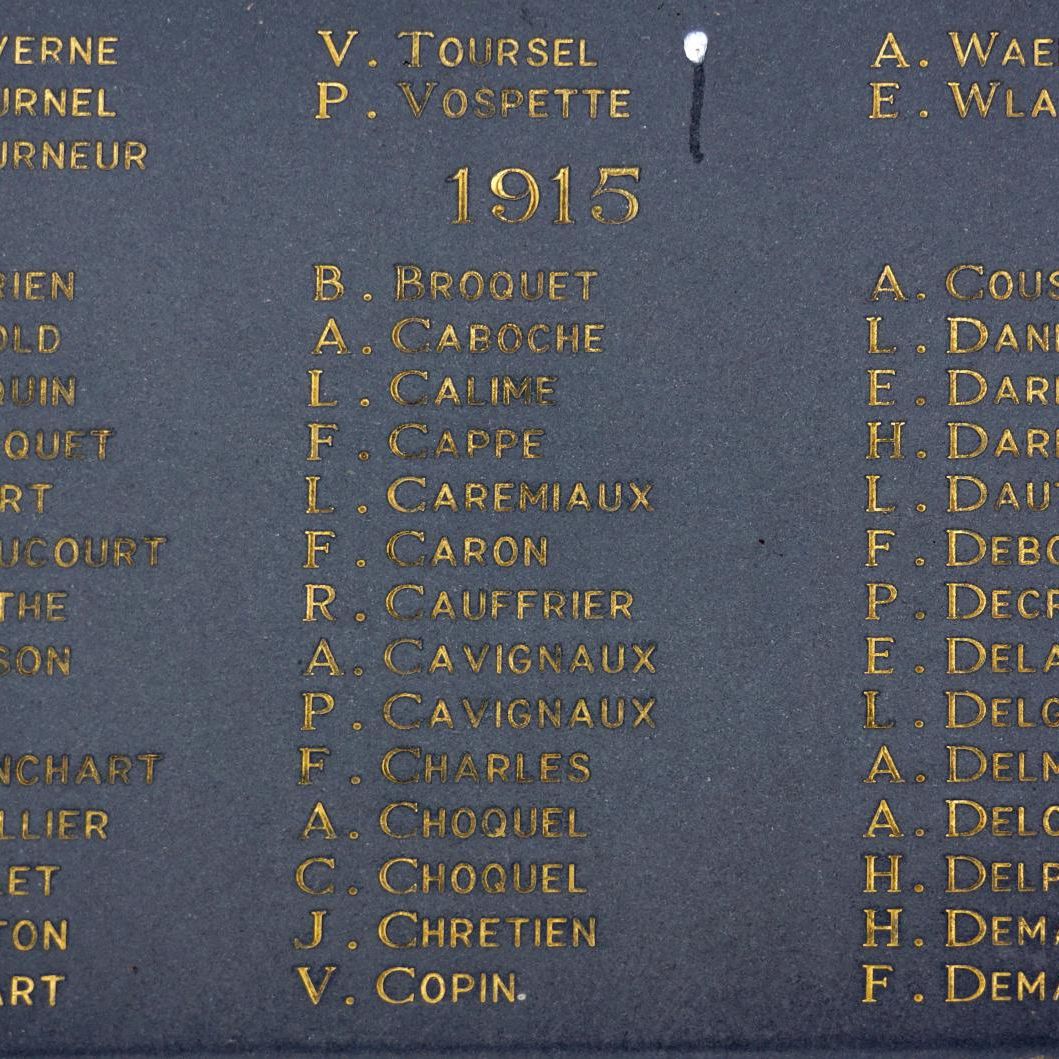 VERNE
URNEL
URNEUR
RIEN
OLD
QUIN
QUET
RT
UCOURT
THE
SON
NCHART
LLIER
LET
TON
ART
V. TOURSEL
P. VOSPETTE
1915
B. BROQUET
A. CABOCHE
L. CALIME
F. CAPPE
L. CAREMIAUX
F. CARON
R. CAUFFRIER
A. CAVIGNAUX
P. CAVIGNAUX
F. CHARLES
A. CHOQUEL
C. CHOQUEL
J. CHRETIEN
V. COPIN
A. WAE
E. WLA
A. COUS
L. DAN
E. DAR
H. DAR
L. DAU
F. DEBO
P. DEC
E. DELA
L. DELC
A. DELM
A. DELO
H. DELP
H. DEMA
F. DEMA